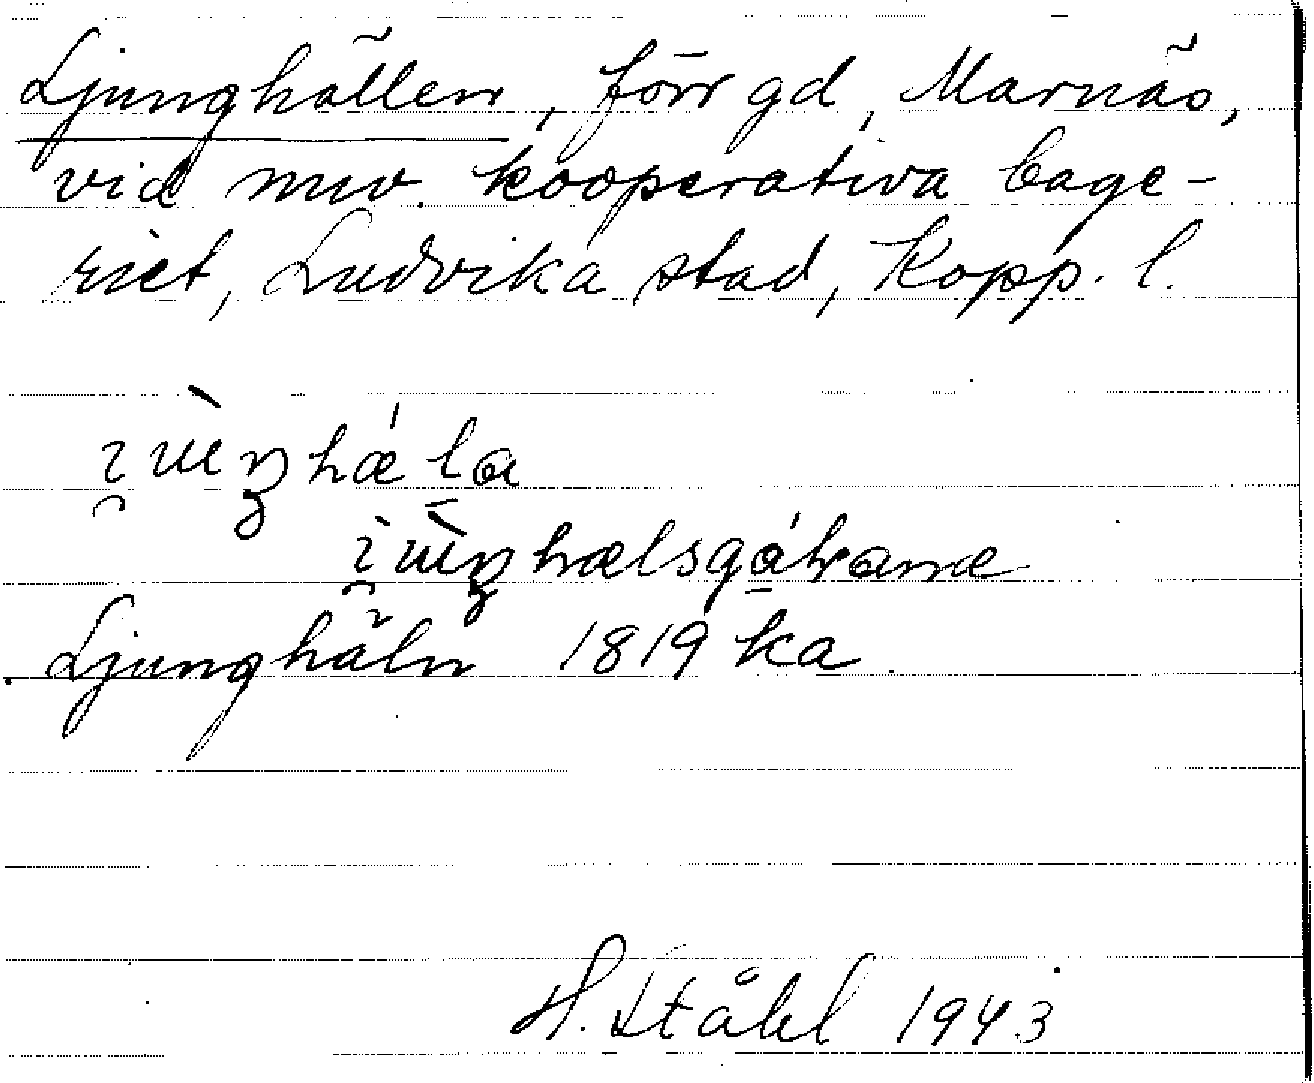 Ljunghällen, förr gd, Marnäs,
vid nuv. kooperativa bage-
riet, Ludvika stad, Kopp. l.
Ljunghäln 1819 ka
H. Ståhl 1943